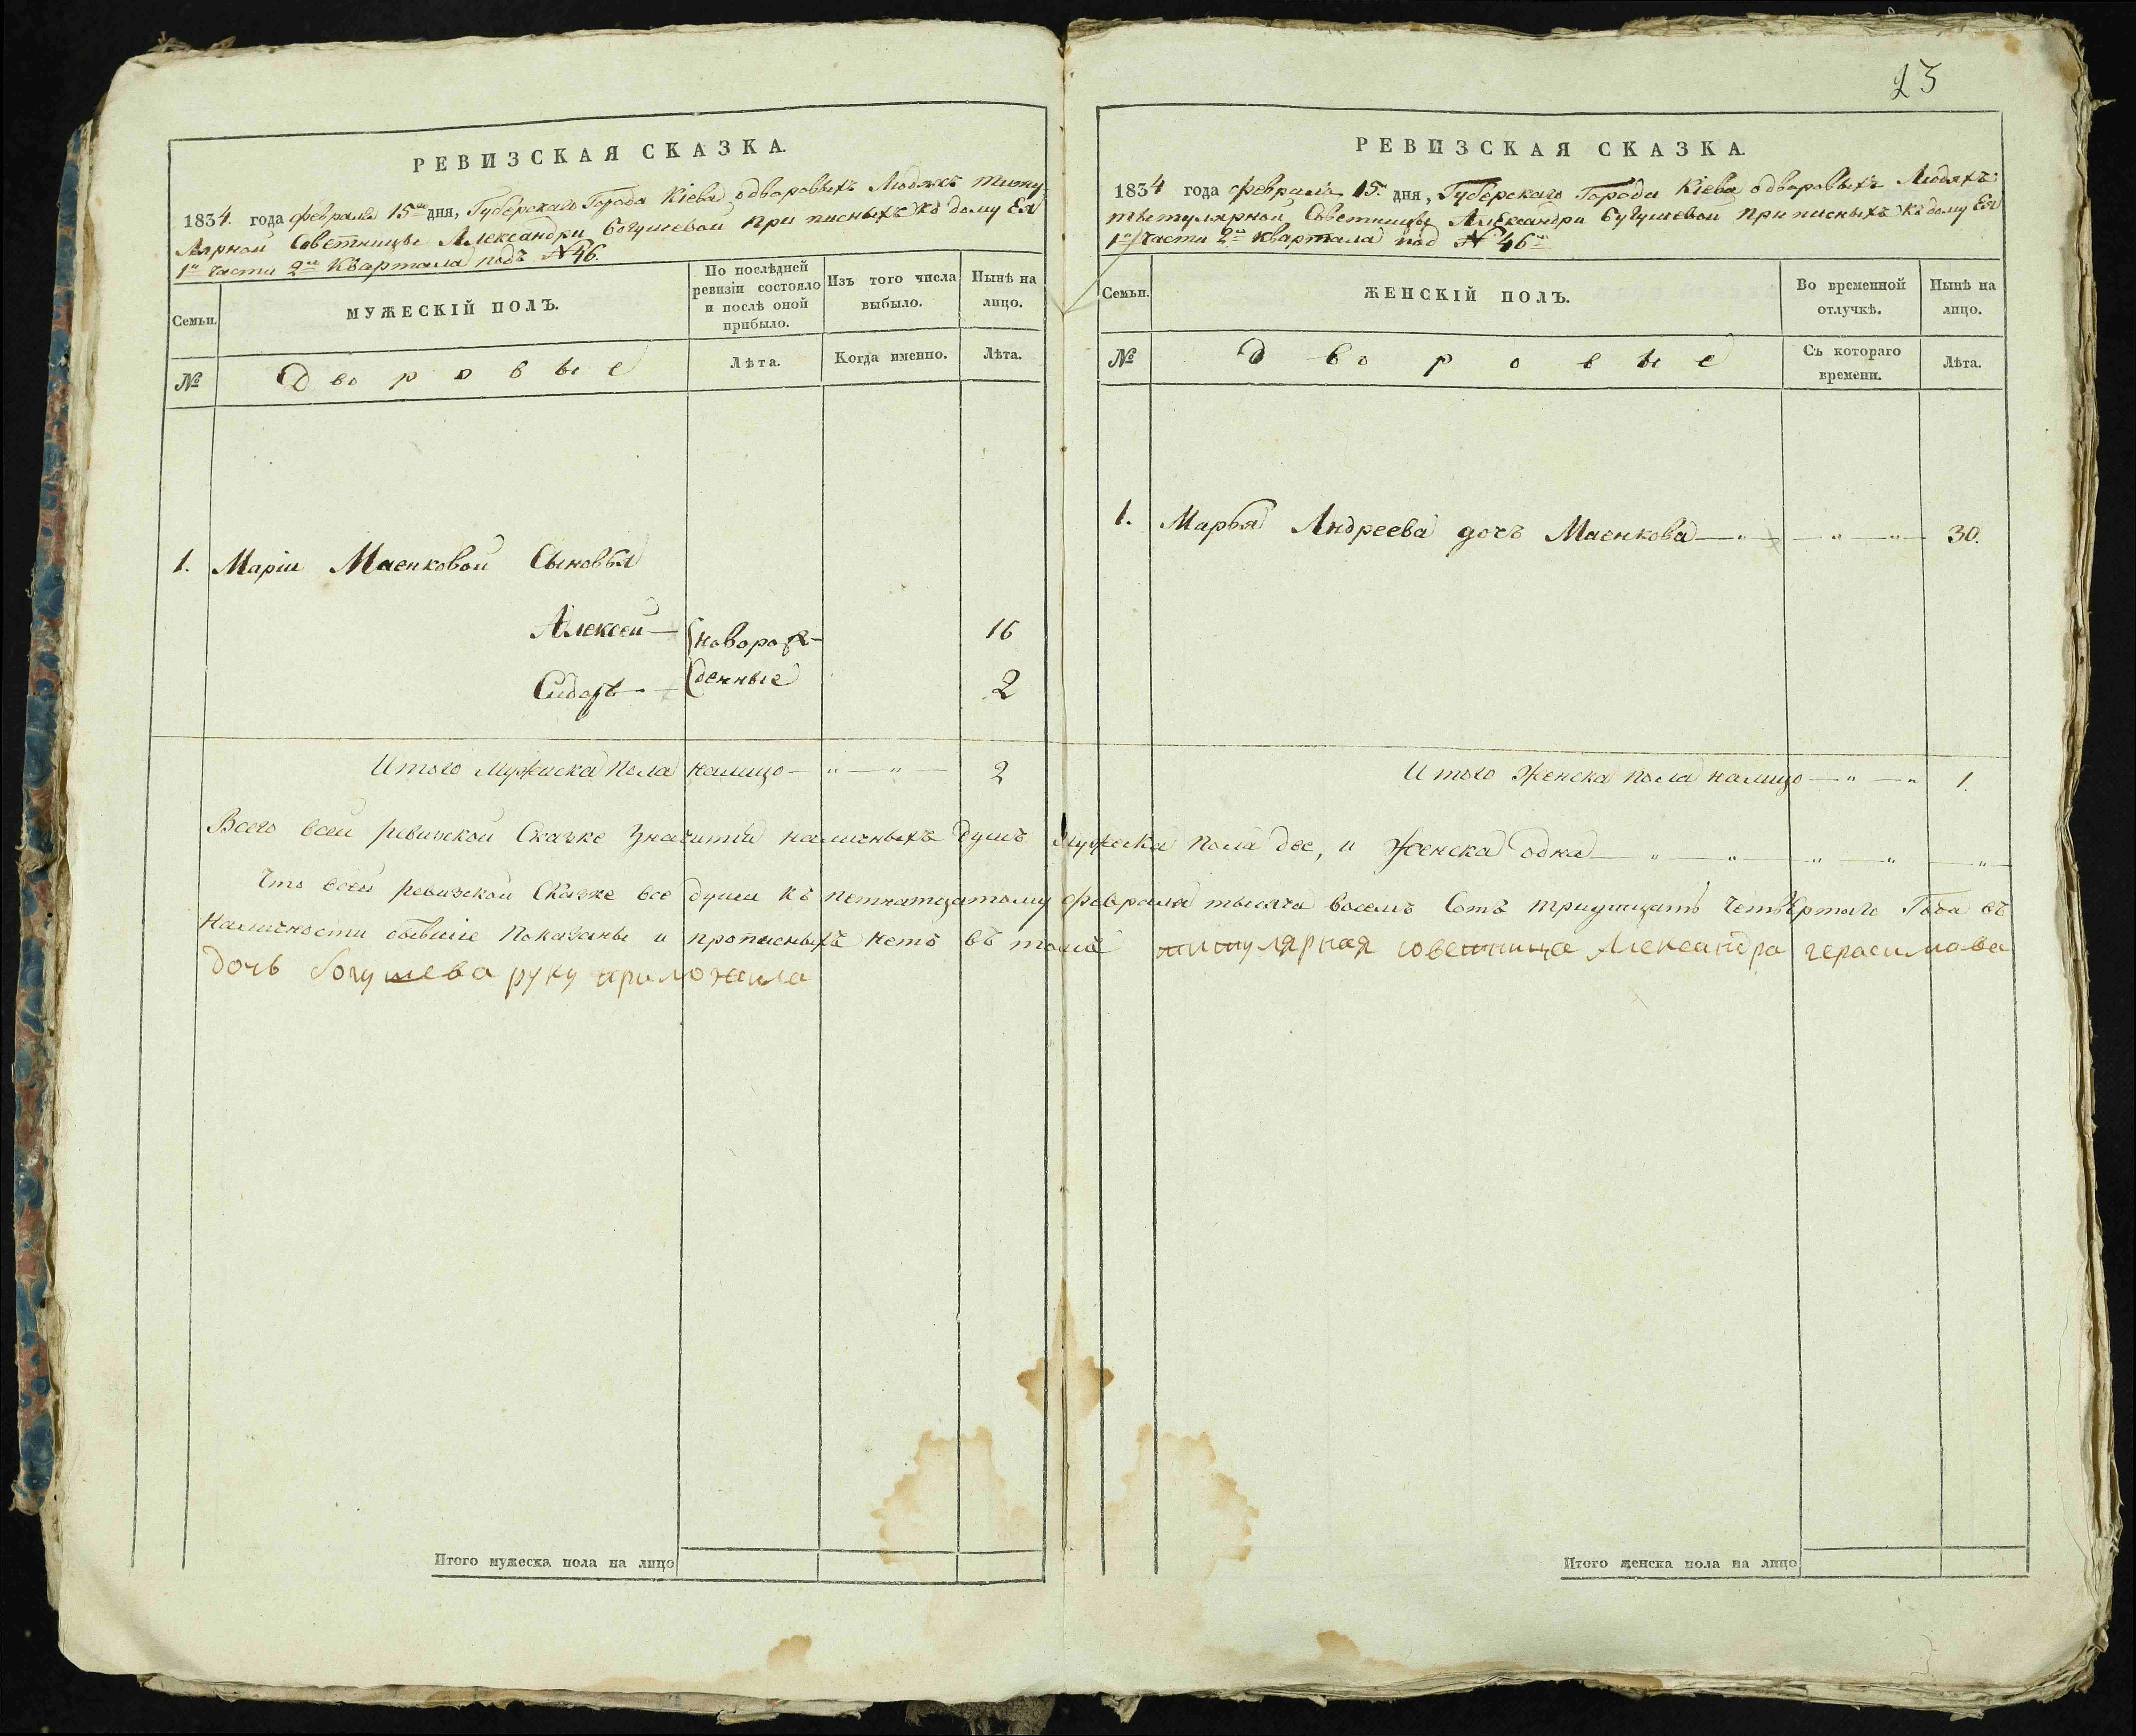 23
РЕВИЗСКАЯ СКАЗКА.
1834. года февраля 15го дня, Губерскаго Города Кіева одворовыхъ Людяхъ титу
лярной Советницы Александри Богушевой при писныхъ къ дому Ея
1й части 2го Квартала подъ №46.
Семьи.
МУЖЕСКІЙ ПОЛЪ.
По послѣдней
ревизіи состояло
и послѣ оной
прибыло.
Изъ того числа
выбыло.
Нынѣ на
лицо.
№
Дворовые
Лѣта.
Когда именно.
Лѣта.
1. Маріи Маенковой Сыновья
Алексей — новорож- 16
Сидоръ — денные 2
Итого Мужеска пола налицо — " — " — 2
РЕВИЗСКАЯ СКАЗКА.
1834 года февраля 15. дня, Губерскаго Города Кіева одворовыхъ Людяхъ:
тытулярной Советницы Александри Бугушевой при писныхъ къ дому Ея
1й части 2го квартала под №46м
Семьи.
ЖЕНСКІЙ ПОЛЪ.
Во временной
отлучкѣ.
Нынѣ на
лицо.
№
Дворовые
Съ котораго
времени.
Лѣта.
1. Марья Андреева дочъ Маенкова — " — " — " — 30.
Итого женска пола налицо — " — " 1.
Всего всей ревизской Сказке значитъ наличныхъ душъ мужеска пола две, и женска одна — " — " — " — " — "
Что всей ревизской Сказке все души къ петнатцатому февраля тысяча восемъ Сотъ тридцать четвертаго Года въ
наличности бывшіе показаны и прописныхъ нетъ въ томъ титулярная советница Александра герасимова
дочь богушева руку приложила
Итого мужеска пола на лицо
Итого женска пола на лицо